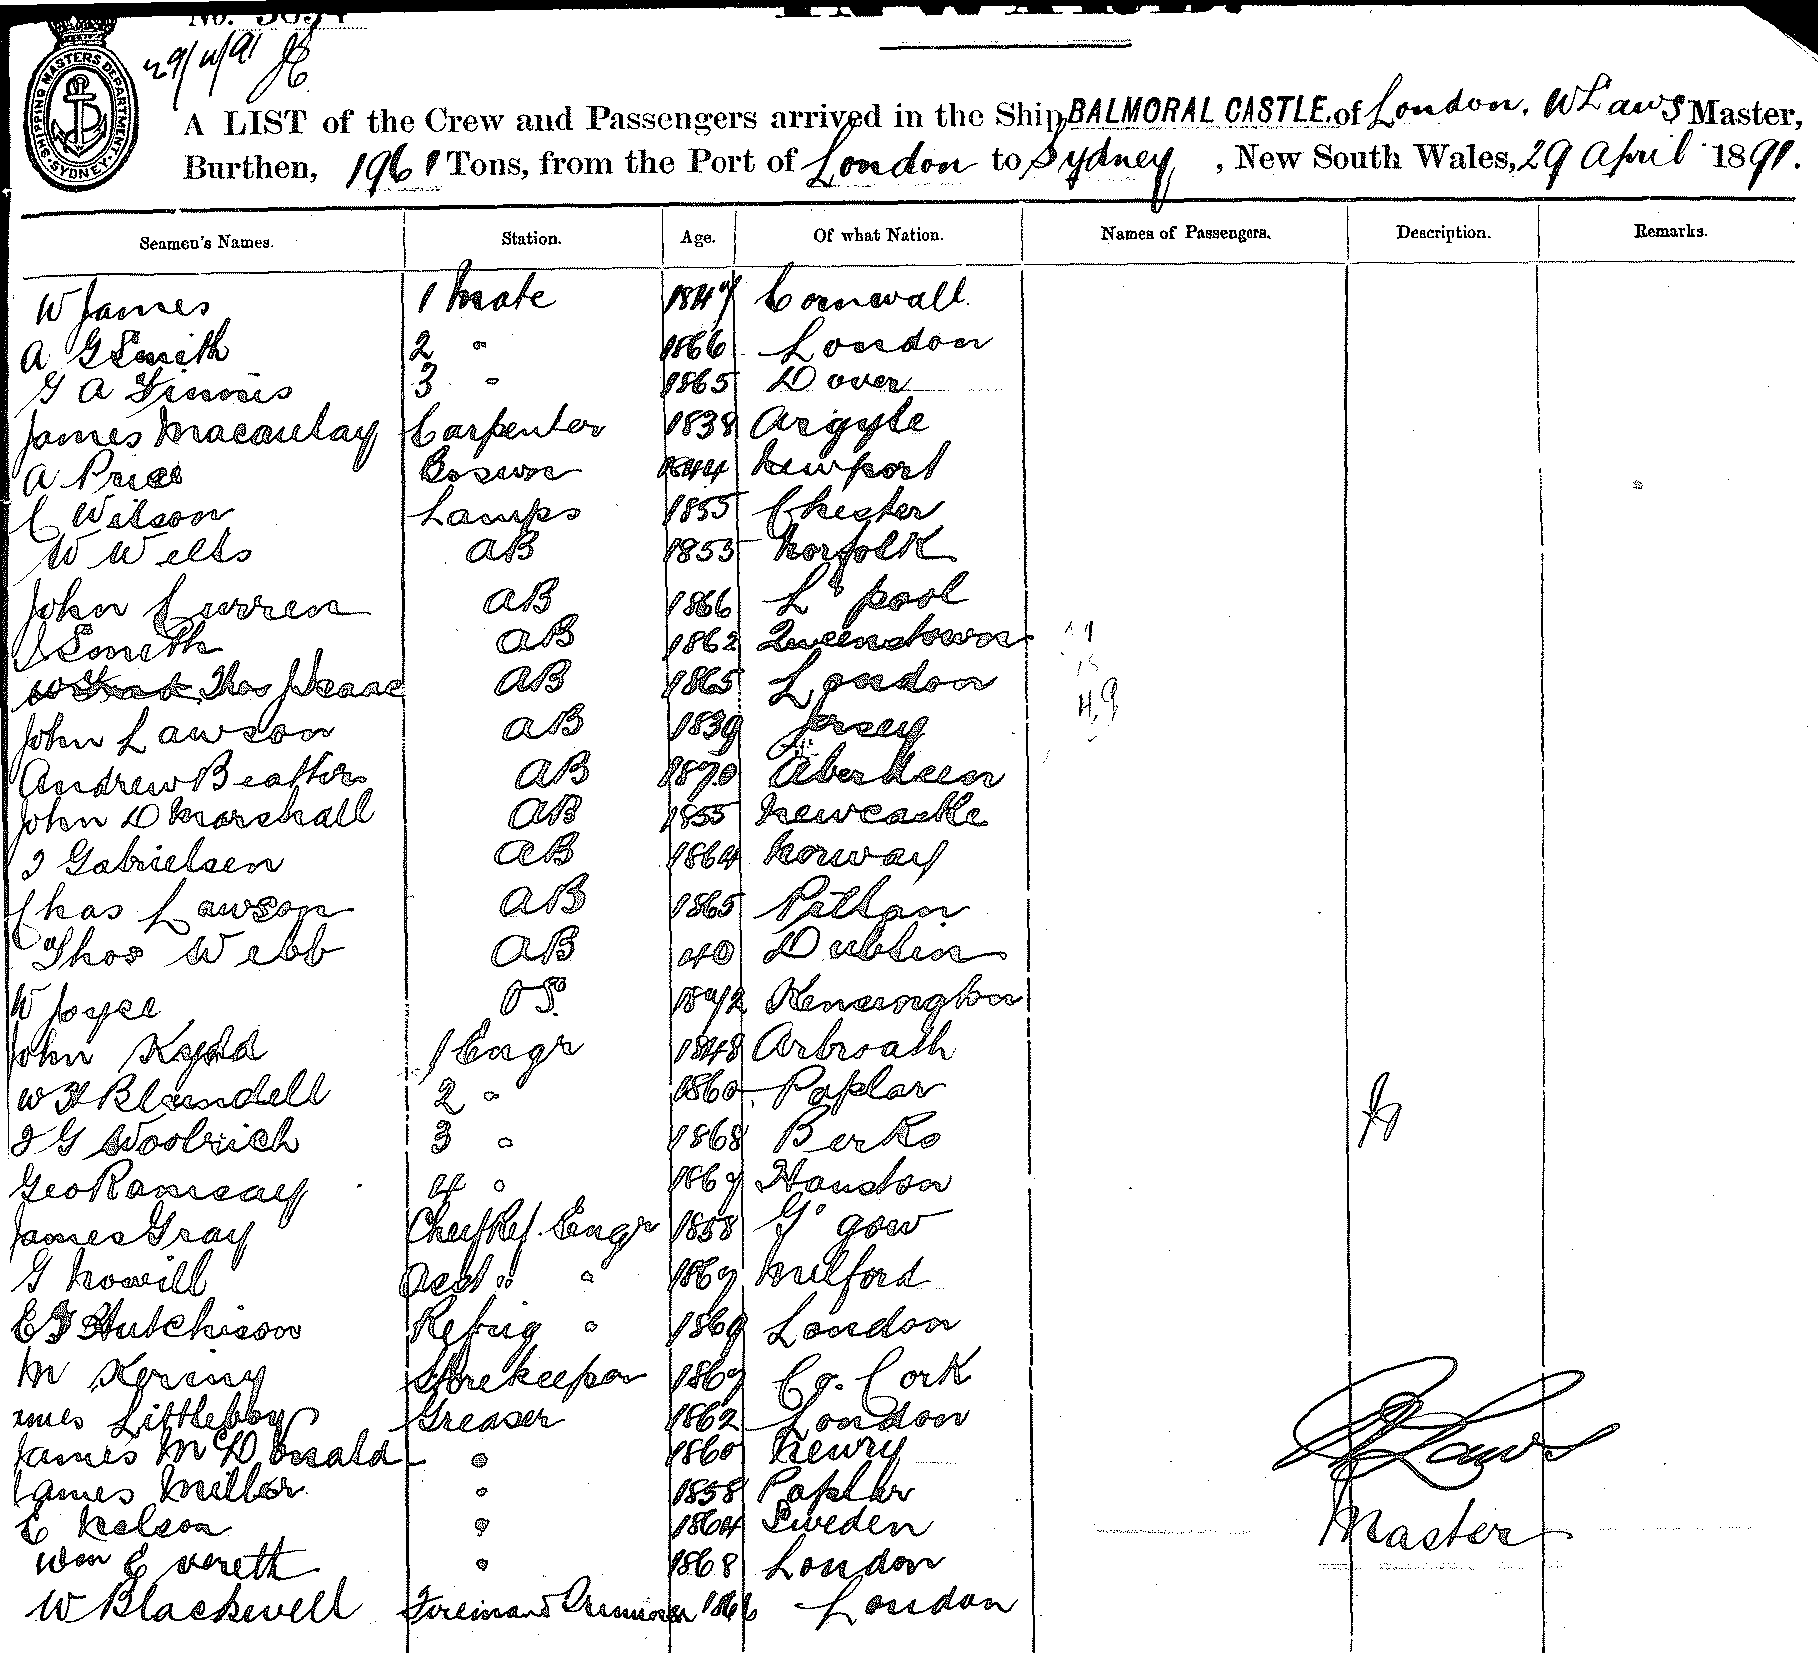 29/4/91
SHIPPING MASTERS DEPARTMENT SYDNEY
A LIST of the Crew and Passengers arrived in the Ship BALMORAL CASTLE. of London. W Laws Master,
Burthen, 1961 Tons, from the Port of London to Sydney, New South Wales, 29 April 1891.
Seamen's Names. Station. Age. Of what Nation. Names of Passengers. Description. Remarks.
W James 1 Mate 1847 Cornwall
A G Smith 2 " 1866 London
G A Finnis 3 " 1865 Dover
James Macaulay Carpenter 1838 Argyle
A Price Boswn 1844 Newport
C Wilson Lamps 1855 Chester
W Wells AB 1853 Norfolk
John Curren AB 1866 L'pool
J Smith AB 1862 Queenstown
Thos J Isaac AB 1865 London
John Lawson AB 1839 Jersey
Andrew Beattie AB 1870 Aberdeen
John D Marshall AB 1855 Newcastle
J Gabrielsen AB 1864 Norway
Chas Lawson AB 1865
Thos Webb AB 40 Dublin
W Joyce OS 1872 Kensington
John Kydd 1 Engr 1848 Arbroath
W H Blundell 2 " 1860 Poplar
J G Woolrich 3 " 1868 Berks
Geo Ramsay 4 " 1867 Houston
James Gray Chief Ref. Engr 1858 G'gow
G Nowill Asst " " 1867 Milford
E J Hutchison Refrig " 1869 London
M Keriny Storekeeper 1867 Co. Cork
Littleboy Greaser 1862 London
James McDonald " 1860 Newry
James Miller " 1858 Poplar
E Nelson " 1864 Sweden
Wm Evereth " 1868 London
W Blackwell Fireman & Trimmer 1866 London
W Laws
Master